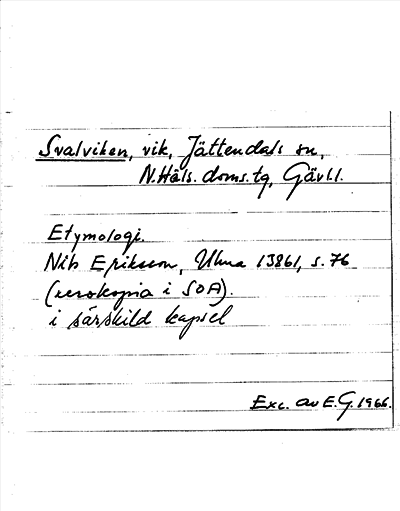 Svalviken, vik, Jättendals sn,
N.Häls. doms.tg, Gävl.l.
Etymologi.
Nils Eriksson, Ulma 13861, s. 76
(xerokopia i SOA).
i särskild kapsel
Exc. av E.G. 1966.